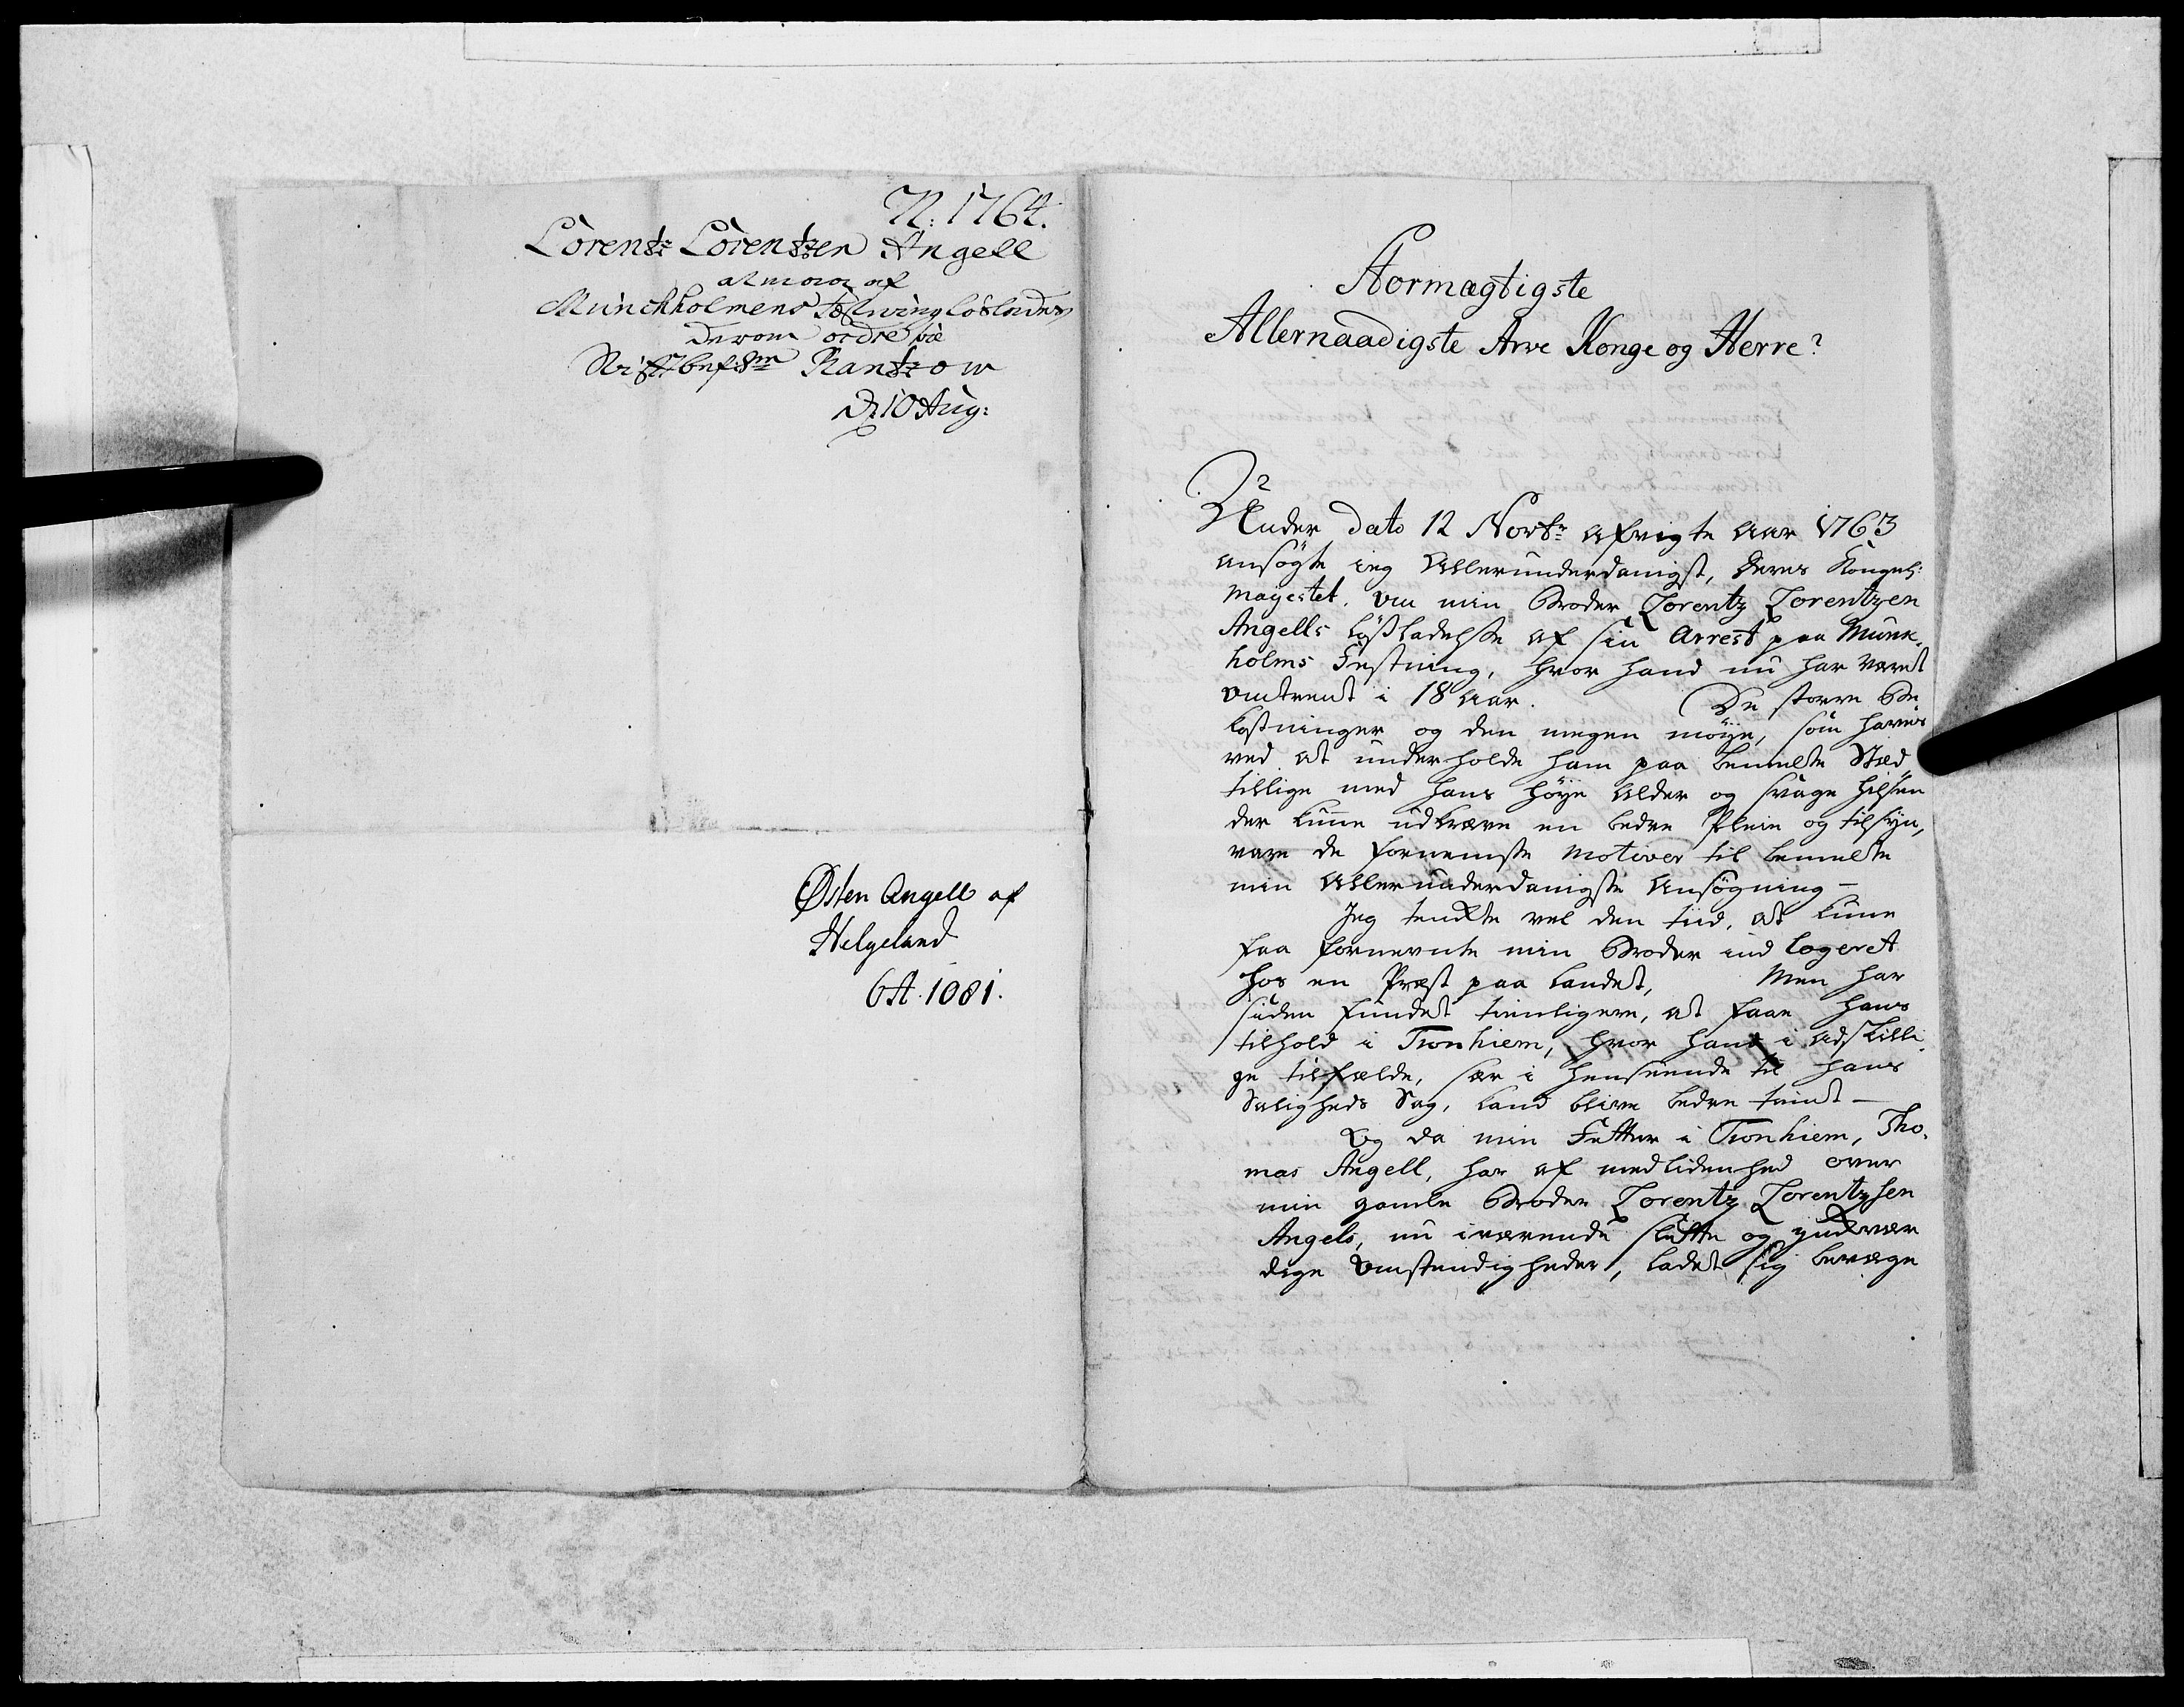 N: 1764.
Lorentz Lorentzen Angell
at maae af
Munckholmens Fæstning løslades
derom ordre til
Stiftbefd:m Rantzow
D: 10 Aug:
Østen Angell af
Helgeland
6 A. 1081.
Stormægtigste
Allernaadigste Arve Konge og Herre?
Under dato 12 Novbr: afvigte Aar 1763
ansøgte ieg Allerunderdanigst, Deres Kongel:
Mayestet. om min Broder Lorentz Lorentzen
Angells løsladelse af sin Arrest paa Munk-
holms Festning, hvor hand nu har været
omtrendt i 18 Aar. De store Be
kostninger og den megen möye, som haves
ved at underholde ham paa bemelte Stæd,
tillige med hans höye Alder og svage Helsen
der kunne udkræve en bedre Pleie og tilsyn,
vare de fornemste Motiver til bemelte
min Allerunderdanigste Ansögning –
Jeg tenkte vel den tiid, at kunne
faa fornevnte min Broder ind logeret
hos en Præst paa Landet, Men har
siden fundet tienligere, at faae hans
tilhold i Tronhiem, hvor hand i adskilli-
ge tilfælde, sær i henseende til hans
Saligheds Sag, kand blive bedre tient –
Og da min Fetter i Tronhiem, Tho-
mas Angell, har af medlidenhed over
min gamle Broder Lorentz Lorentzsen
Angels, nu iværende slette og ynkvær
dige Omstendigheder, ladet sig bevæge